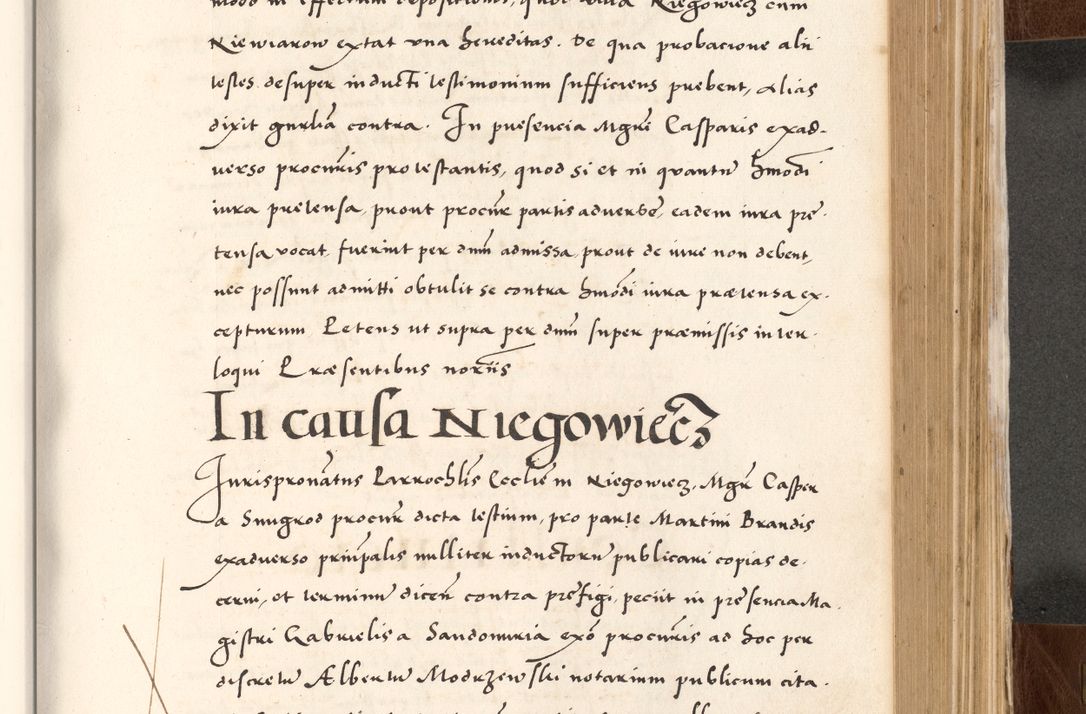 modo in effectum depositionis, quod villa Niegowiecz cum
Niewiarow extat vna hereditas. De qua probacione alii
testes desuper inducti testimonium sufficiens prebent, alias
dixit gnrlia contra. In presencia Mgri Casparis exad-
uerso procuris protestantis, quod si et in quantu hmodi
iura pretensa, prout procur partis aduerse, eadem iura pre-
tensa vocat, fuerint per dnm admissa, prout de iure non debent,
nec possunt admitti obtulit se contra hmodi iura prætensa ex-
cepturum Petens ut supra per dnm super præmissis inter-
loqui Præsentibus noriis
In causa Niegowiecz
Jurispronatus Parrochlis Ecclie in Niegowiecz, Mgr Casper
a Smigrod procur dicta testium, pro parte Martini Brandis
exaduerso prinpalis nulliter inductoru publicari copias de-
cerni, et terminu dicen contra prefigi, peciit in presencia Ma-
gistri Gabrielis a Sandomiria exo procuris ad hoc per
discretu Albertu Modrzewski notarium publicum cita-